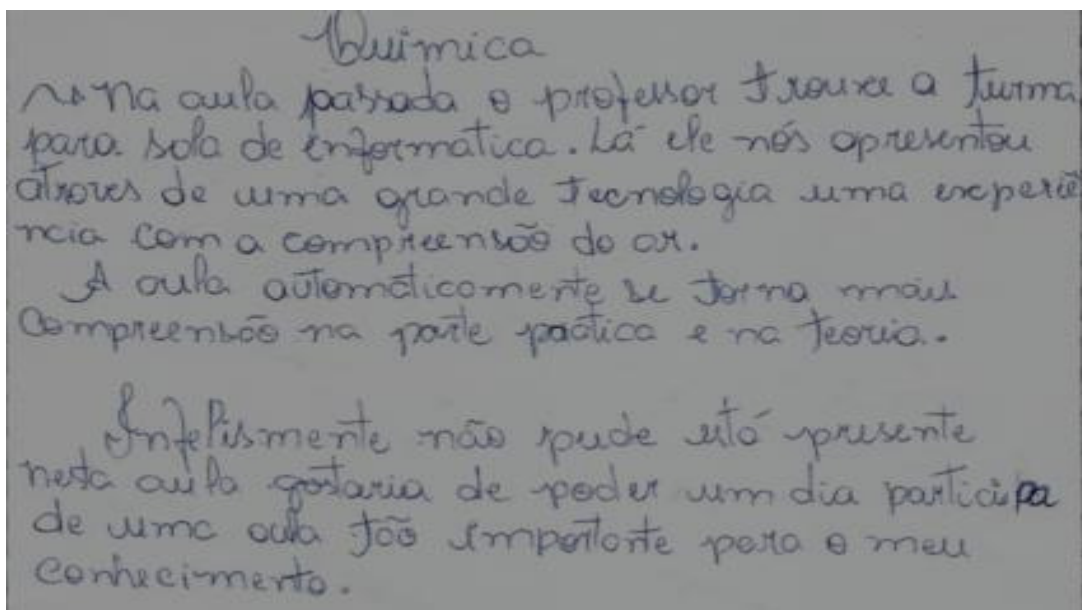 Química
Na aula passada o professor trouxe a turma
para sala de enformática. Lá ele nós apresentou
atraves de uma grande tecnologia uma experiê
ncia com a compreensão do ar.
A aula automáticamente se torna mais
Compreensão na parte pactica e na teoria.
Infelismente não pude está presente
nesta aula gostaria de poder um dia participa
de uma aula tão importante para o meu
conhecimento.